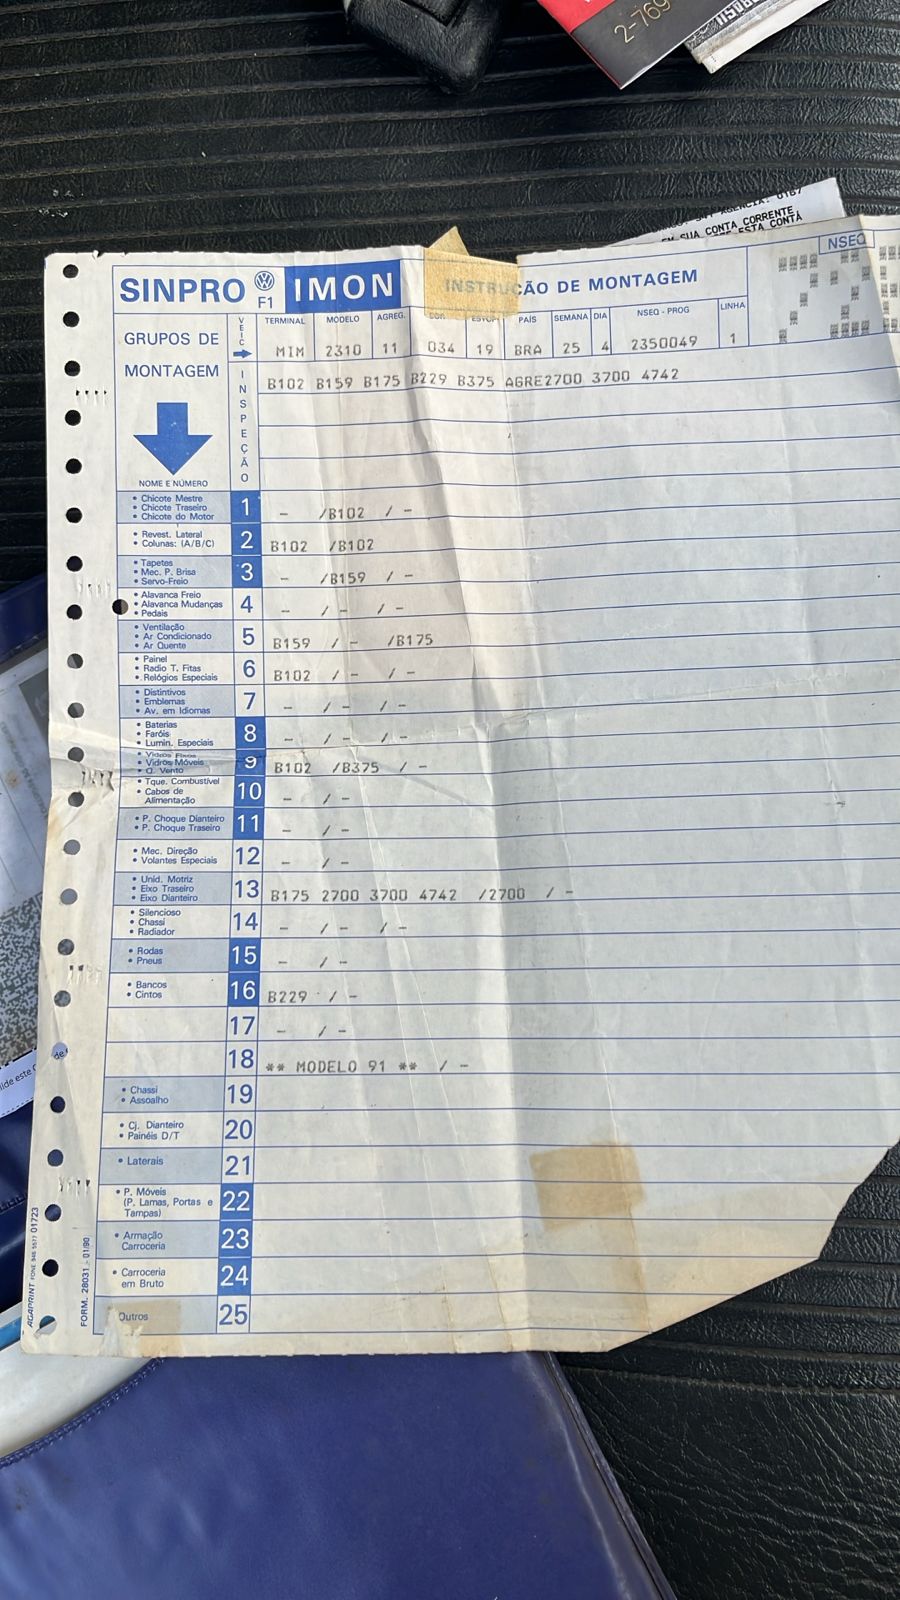 2-769
BRASIL
AGÊNCIA: 0167
EM SUA CONTA CORRENTE
ESTA CONTA
SINPRO F1 IMON INSTRUÇÃO DE MONTAGEM NSEQ
GRUPOS DE MONTAGEM
NOME E NÚMERO
VEIC
INSPEÇÃO
TERMINAL MODELO AGREG. COR ESTOF. PAÍS SEMANA DIA NSEQ - PROG LINHA
MIM 2310 11 034 19 BRA 25 4 2350049 1
B102 B159 B175 B229 B375 AGRE2700 3700 4742
• Chicote Mestre
• Chicote Traseiro
• Chicote do Motor
1 - /B102 / -
• Revest. Lateral
• Colunas: (A/B/C)
2 B102 /B102
• Tapetes
• Mec. P. Brisa
• Servo-Freio
3 - /B159 / -
• Alavanca Freio
• Alavanca Mudanças
• Pedais
4 - / - / -
• Ventilação
• Ar Condicionado
• Ar Quente
5 B159 / - /B175
• Painel
• Radio T. Fitas
• Relógios Especiais
6 B102 / - / -
• Distintivos
• Emblemas
• Av. em Idiomas
7 - / - / -
• Baterias
• Faróis
• Lumin. Especiais
8 - / - / -
• Vidros Fixos
• Vidros Móveis
• Q. Vento
9 B102 /B375 / -
• Tque. Combustível
• Cabos de Alimentação
10 - / -
• P. Choque Dianteiro
• P. Choque Traseiro
11 - / -
• Mec. Direção
• Volantes Especiais
12 - / -
• Unid. Motriz
• Eixo Traseiro
• Eixo Dianteiro
13 B175 2700 3700 4742 /2700 / -
• Silencioso
• Chassi
• Radiador
14 - / - / -
• Rodas
• Pneus
15 - / -
• Bancos
• Cintos
16 B229 / -
17 - / -
18 ** MODELO 91 ** / -
• Chassi
• Assoalho
19
• Cj. Dianteiro
• Painéis D/T
20
• Laterais
21
• P. Móveis
(P. Lamas, Portas e
Tampas)
22
• Armação
Carroceria
23
• Carroceria
em Bruto
24
Outros
25
FORM. 28031 - 01/90